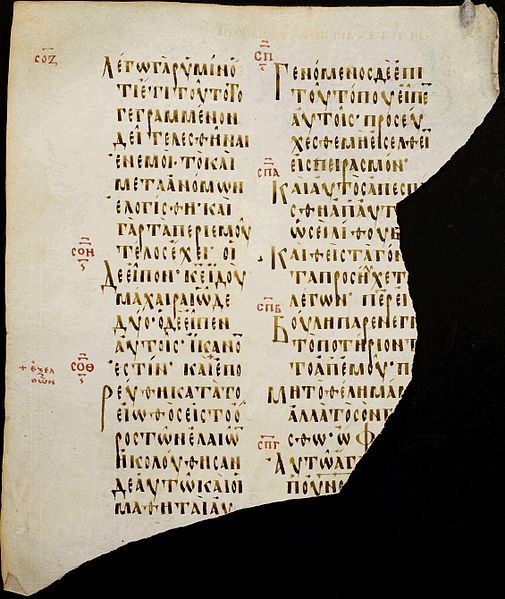 ϹΟΖ
ΛΕΓΩΓΑΡΥΜΙΝΟ̅
ΤΙΕΤΙΤΟΥΤΟΤΟ
ΓΕΓΡΑΜΜΕΝΟΝ
ΔΕΙΤΕΛΕϹΘΗΝΑΙ
ΕΝΕΜΟΙ·ΤΟΚΑΙ
ΜΕΤΑΑΝΟΜΩΝ
ΕΛΟΓΙϹΘΗ·ΚΑΙ
ΓΑΡΤΑΠΕΡΙΕΜΟΥ
ϹΟΗ
ΤΕΛΟϹΕΧΕΙ·ΟΙ
ΔΕΕΙΠΟΝ·Κ̅Ε̅ΪΔΟΥ
ΜΑΧΑΙΡΑΙΩΔΕ
ΔΥΟ·ΟΔΕΕΙΠΕΝ
ΑΥΤΟΙϹ·ΪΚΑΝΟ
ϹΟΘ
+ ἐξελ
θων
ΕϹΤΙΝ·ΚΑΙΕΠΟ
ΡΕΥΘΗΚΑΤΑΤΟ
ΕΙΩΘΟϹΕΙϹΤΟΟ
ΡΟϹΤΩΝΕΛΑΙΩ̅
ΗΚΟΛΟΥΘΗϹΑΝ
ΔΕΑΥΤΩΚΑΙΟΙ
ΜΑΘΗΤΑΙΑΥ
ϹΠ
ΓΕΝΟΜΕΝΟϹΔΕΕΠΙ
ΤΟΥΤΟΠΟΥΕΙΠΕ
ΑΥΤΟΙϹ·ΠΡΟϹΕΥ
ΧΕϹΘΕΜΗΕΙϹΕΛΘΕΙ̅
ΕΙϹΠΕΙΡΑϹΜΟΝ·
ϹΠΑ
ΚΑΙΑΥΤΟϹΑΠΕϹΠ
ϹΘΗΑΠΑΥΤ
ΩϹΕΙΛΙΘΟΥΒ
ΚΑΙΘΕΙϹΤΑΓΟΝ
ΤΑΠΡΟϹΗΥΧΕΤ
ΛΕΓΩΝ·ΠΕΡΕΙ
ϹΠΒ
ΒΟΥΛΗΠΑΡΕΝΕΓΚ
ΤΟΠΟΤΗΡΙΟΝΤ
ΤΟΑΠΕΜΟΥ·Π
ΜΗΤΟΘΕΛΗΜΑ
ΑΛΛΑΤΟϹΟΝΓ
ϹΘΩ·ΩΦ
ϹΠΓ
ΑΥΤΩΑΓΓ
ΠΟΥΝ